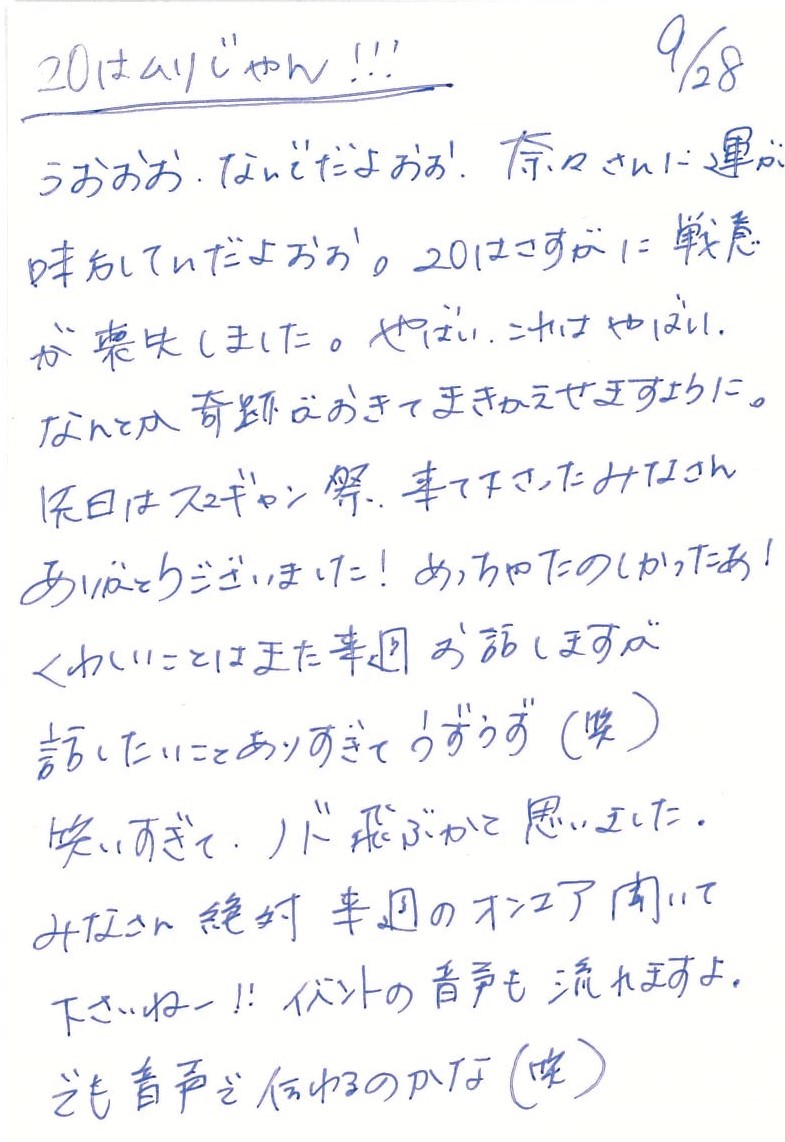 20はムリじゃん!!! 9/28
うおおお、なんでだよおお!奈々さんに運が
味方してんだよおお。20はさすがに戦意
が喪失しました。やばい、これはやばい。
なんとか奇跡がおきてまきかえせますように。
昨日はスマギャン祭、来て下さったみなさん
ありがとうございました!めっちゃたのしかったあ!
くわしいことはまた来週お話しますが
話したいことありすぎてうずうず(笑)
笑いすぎて、ノド飛ぶかと思いました。
みなさん絶対来週のオンエア聞いて
下さいねー!!イベントの音声も流れますよ。
でも音声で伝わるのかな(笑)